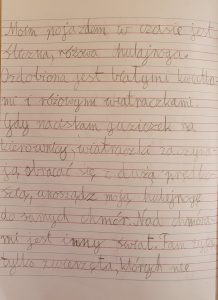 Moim pojazdem w czasie jest
śliczna, różowa hulajnoga.
Ozdobiona jest białymi kwiata-
mi i różowym wiatraczkami.
Gdy naciskam guziczek na
kierownicy, wiatraczki zaczyna-
ją obracać się z dużą prędko-
ścią, unosząc moją hulajnogę
do samych chmur. Nad chmura-
mi jest inny świat. Tam żyją
tylko zwierzęta, których nie